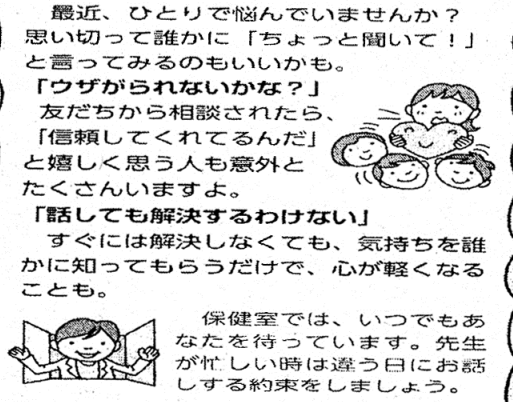 最近、ひとりで悩んでいませんか？
思い切って誰かに「ちょっと聞いて！」
と言ってみるのもいいかも。
「ウザがられないかな？」
友だちから相談されたら、
「信頼してくれてるんだ」
と嬉しく思う人も意外と
たくさんいますよ。
「話しても解決するわけない」
すぐには解決しなくても、気持ちを誰
かに知ってもらうだけで、心が軽くなる
ことも。
保健室では、いつでもあ
なたを待っています。先生
が忙しい時は違う日にお話
しする約束をしましょう。